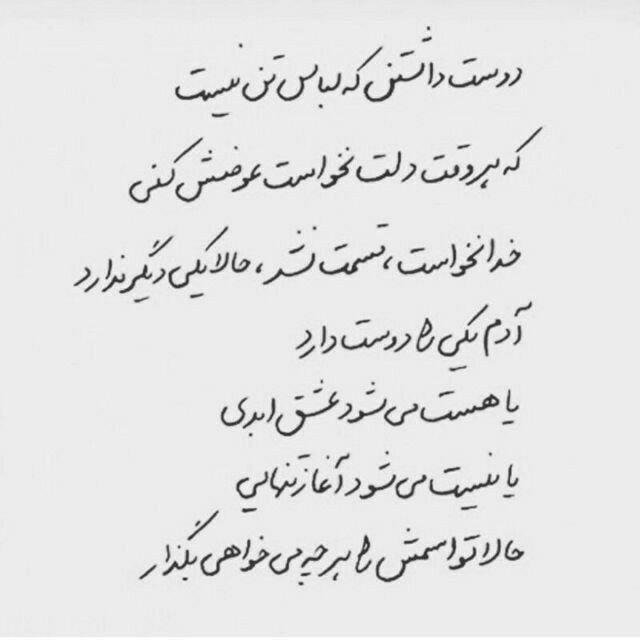 دوست داشتن که لباس تن نیست
که هر وقت دلت نخواست عوضش کنی
خدا نخواست، قسمت نشد، حالا یکی دیگر ندارد
آدم یکی را دوست دارد
یا هست می شود عشق ابدی
یا نیست می شود آغاز تنهایی
حالا تو اسمش را هر چه می خواهی بگذار